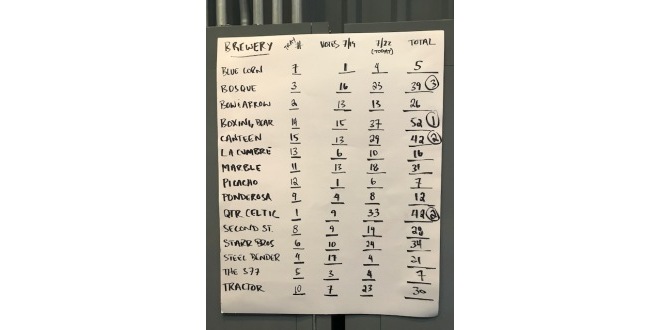 BREWERY TRAY # VOTES 7/19 7/22 TOTAL
(TODAY)
BLUE CORN 7 1 4 5
BOSQUE 3 16 23 39 3
BOW & ARROW 2 13 13 26
BOXING BEAR 14 15 37 52 1
CANTEEN 15 13 29 42 2
LA CUMBRE 13 6 10 16
MARBLE 11 13 18 31
PICACHO 12 1 6 7
PONDEROSA 9 4 8 12
QTR CELTIC 1 9 33 42 2
SECOND ST. 8 9 19 28
STARR BROS 6 10 24 34
STEEL BENDER 4 17 4 21
THE 377 5 3 4 7
TRACTOR 10 7 23 30